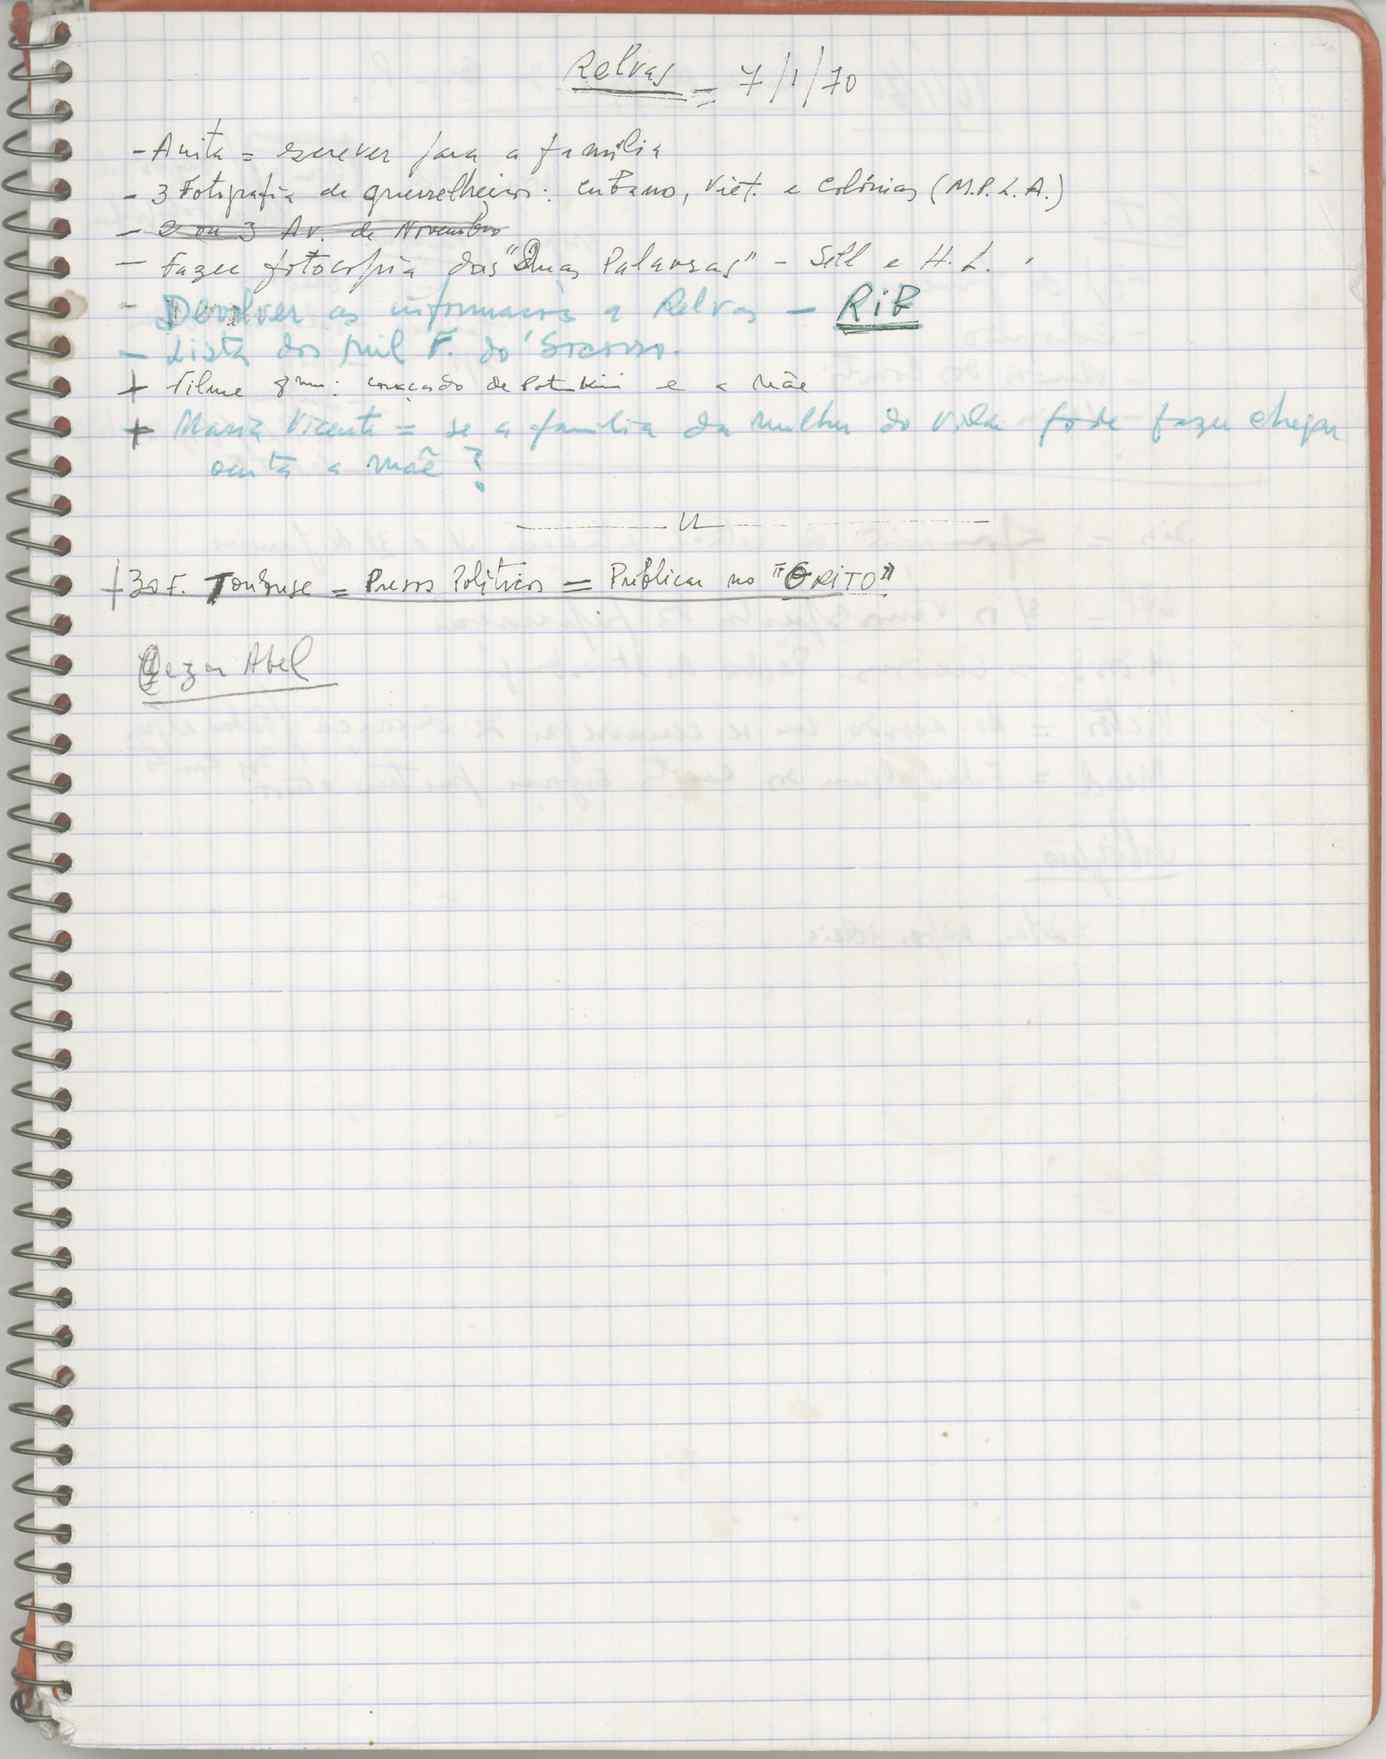 Relvas = 7/1/70
- Anita = escrever para a família
- 3 Fotografia de guerrelheiros: cubano, Viet. e Colónias (M.P.L.A.)
- 2 ou 3 Av. de Novembro
- Fazer fotocopia das "Duas Palavras" - Sell e H. L.
- Devolver as informações a Relvas - RiB
- Lista dos mil F. do Socorro.
+ Filme 8mm: couraçado de Potemkin e a Mãe
+ Maria Vicente = se a família da mulher do Vila pode fazer chegar
carta a mãe ?
+ 30 F. Toulouse = Presos Políticos = Publicar no "GRITO"
Cezar Abel